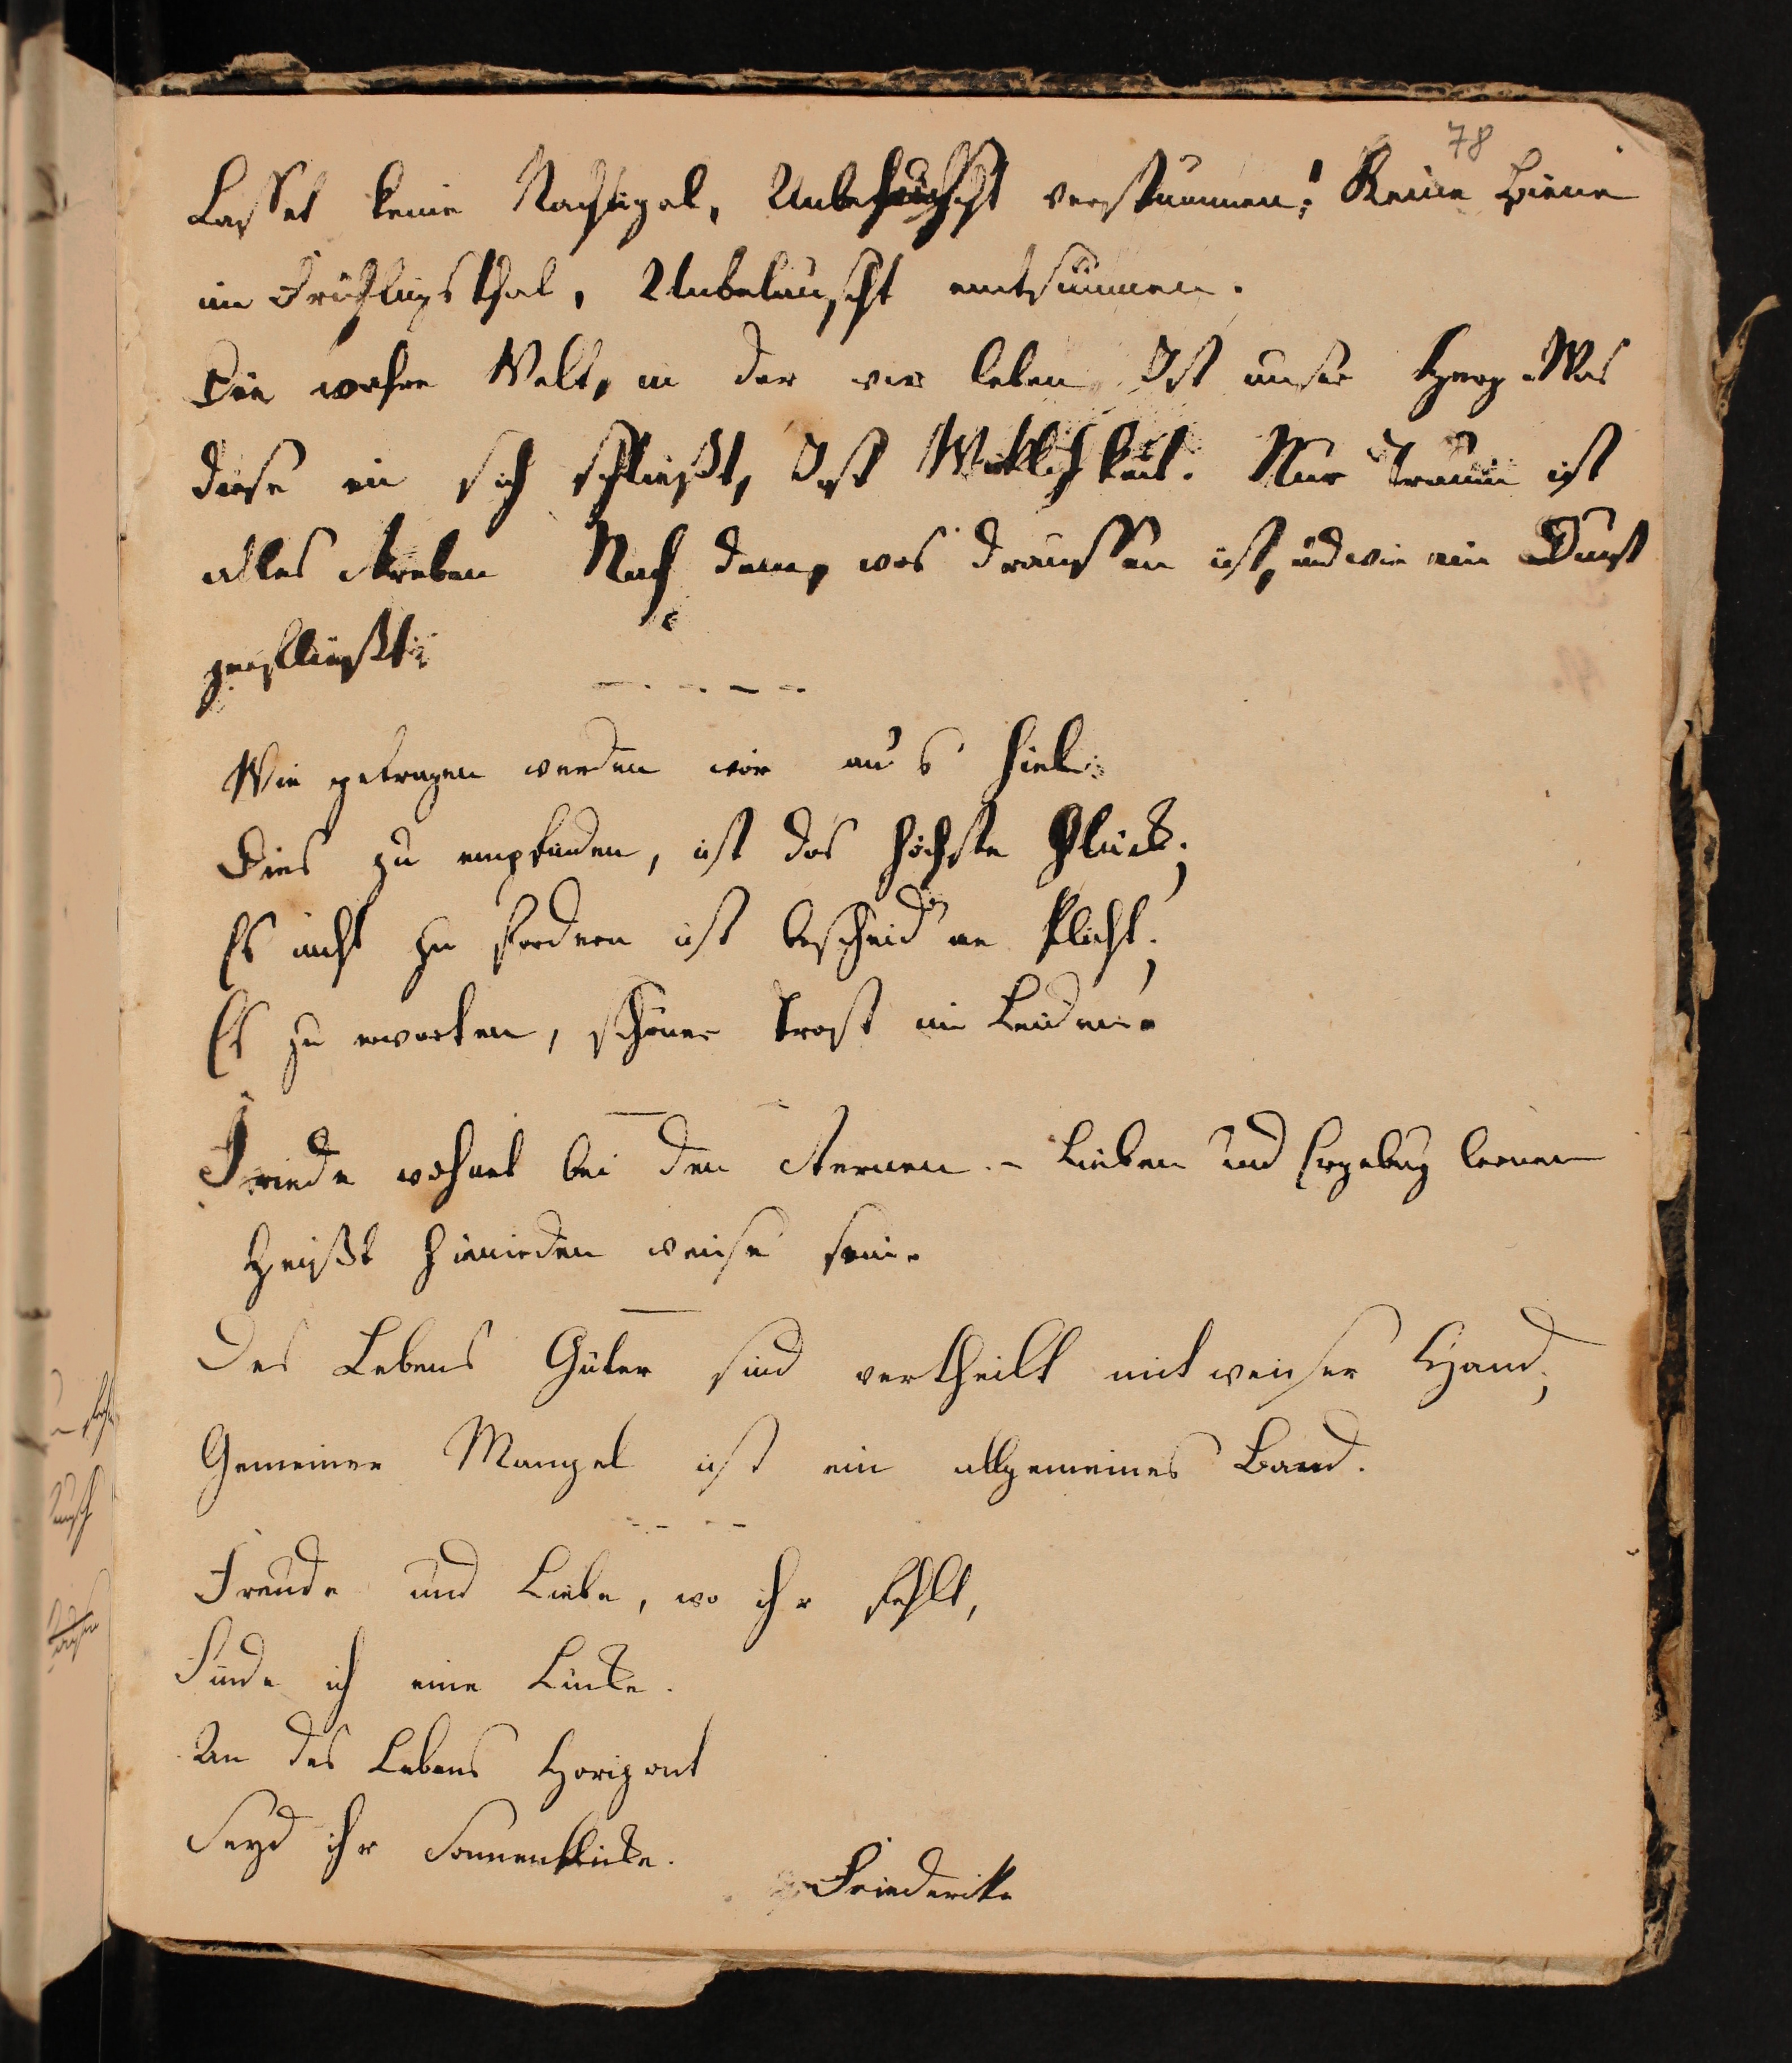 78
Lasset keine Nachtigal, Unbehorcht verstummen! Keine Biene
im Frühlingsthal, Unbelauscht entsummen.
Die wahre Welt, in der wir leben, Ist unser Herz. Was
diese in sich schließt, Ist Wirklichkeit. Nur Traum ist
alles streben Nach dem, was draussen ist, und wie ein Dunst
zerfließt.
Wie getragen werden wir aus Ziel.
Dies zu empfinden, ist das höchste Glück;
Es nicht zu fordern ist bescheidne Plicht;
Es zu erwarten, schöner Trost im Leiden.
Friede wohnet bei den Sternen. - Lieben und Ergebung lernen
Heißt hienieden weise sein.
Des Lebens Güter sind vertheilt mit weiser Hand;
Gemeiner Mangel ist ein allgemeines Band.
Freude und Liebe, wo ihr fehlt,
Finde ich eine Lücke.
An des Lebens Horizont
Seyd ihr Sonnenblicke.
Friederike